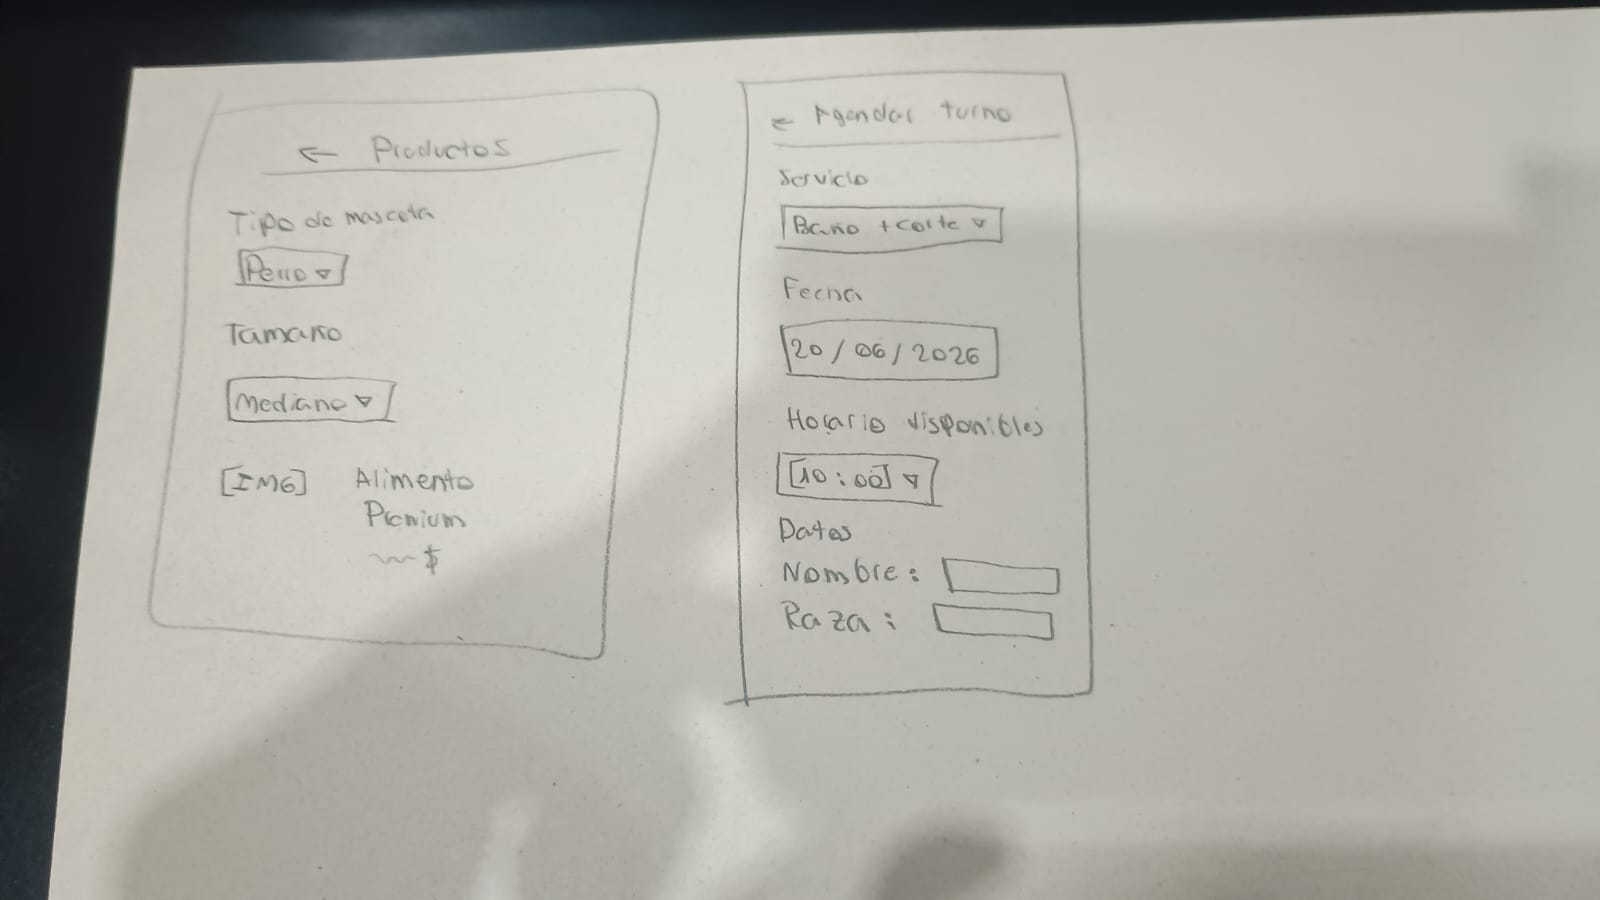 ← Productos
Tipo de mascota
Perro ▽
Tamaño
Mediano ▽
[IMG] Alimento
Premium
~~ $
← Agendar turno
Servicio
Baño + corte ▽
Fecha
20 / 06 / 2026
Horario disponibles
[10 : 00] ▽
Datos
Nombre :
Raza :